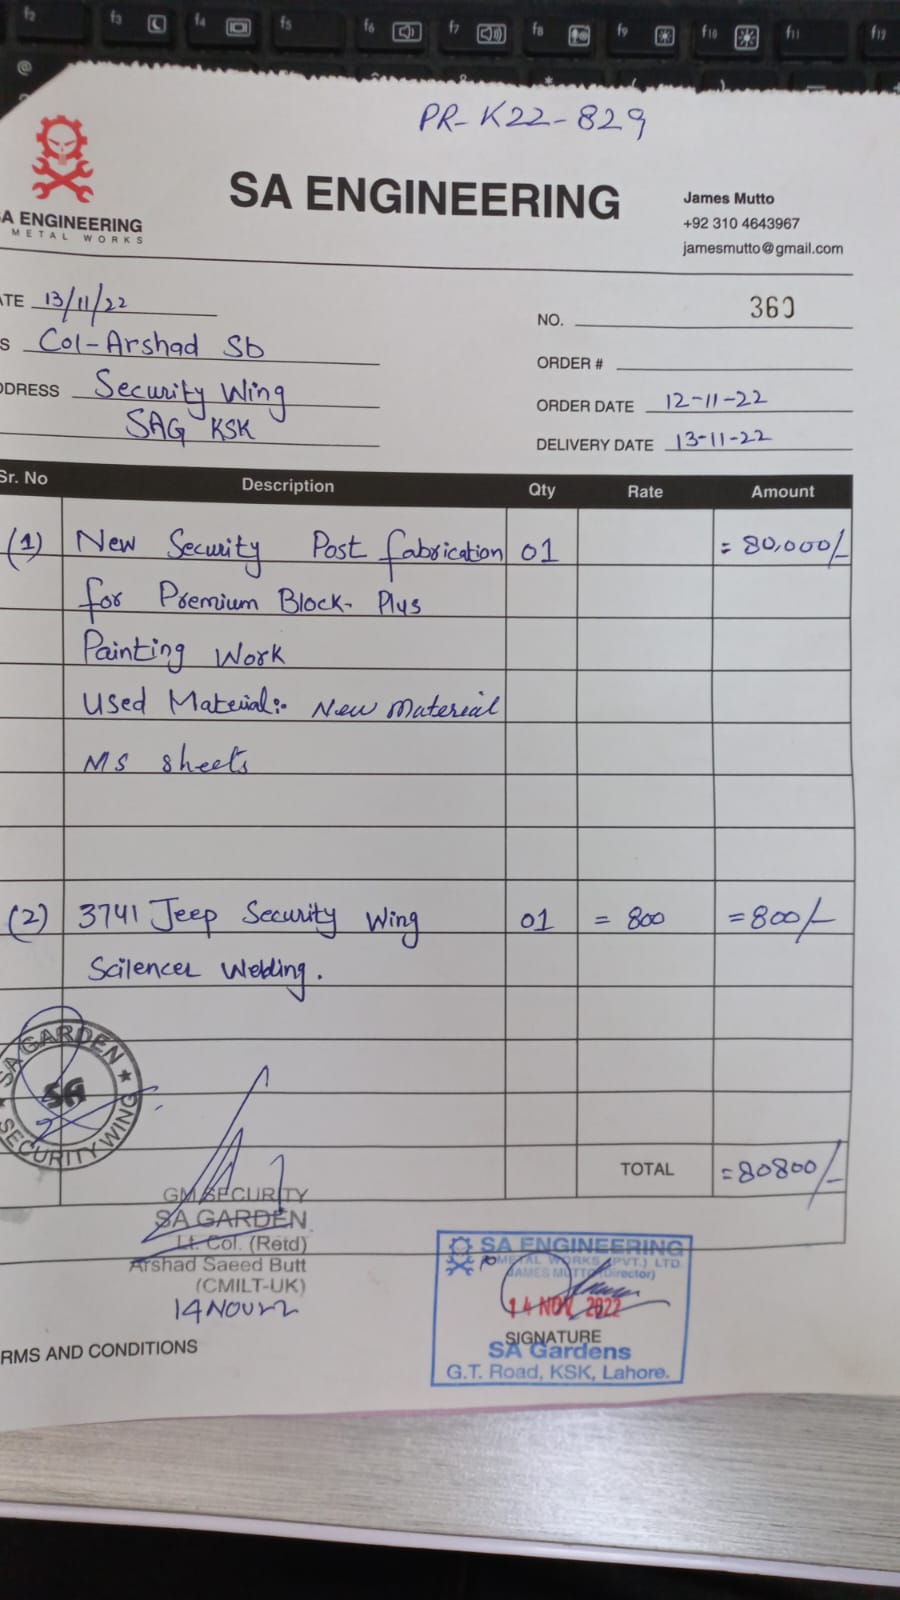 f2 f3 f4 f5 f6 f7 f8 f9 f10 f11 f12
@
PR-K22-829
SA ENGINEERING
A ENGINEERING
METAL WORKS
James Mutto
+92 310 4643967
jamesmutto@gmail.com
ATE 13/11/22
NO. 360
S Col-Arshad Sb
ORDER #
DDRESS Security Wing
SAG KSK
ORDER DATE 12-11-22
DELIVERY DATE 13-11-22
Sr. No Description Qty Rate Amount
(1) New Security Post fabrication 01 = 80,000/-
for Premium Block- Plus
Painting Work
Used Material:- New Material
MS sheets
(2) 3741 Jeep Security Wing 01 = 800 = 800/-
Scilencer Welding.
SA GARDEN
SA
SECURITY WING
TOTAL = 80800/-
GM SECURITY
SA GARDEN
Lt. Col. (Retd)
Arshad Saeed Butt
(CMILT-UK)
14 NOV 22
SA ENGINEERING
METAL WORKS (PVT.) LTD.
JAMES MUTTO (Director)
14 NOV 2022
SIGNATURE
SA Gardens
G.T. Road, KSK, Lahore.
RMS AND CONDITIONS